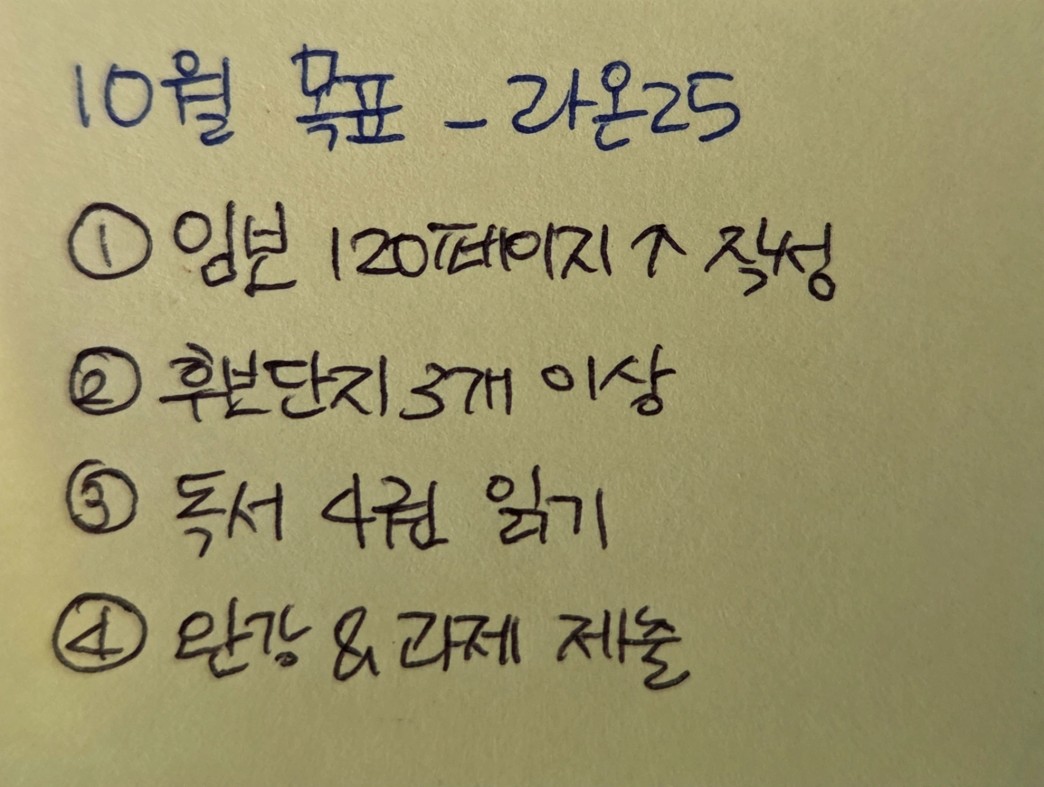 10월 목표 - 라온25
① 임보 120페이지↑ 작성
② 후보단지 3개 이상
③ 독서 4권 읽기
④ 완강 & 과제 제출